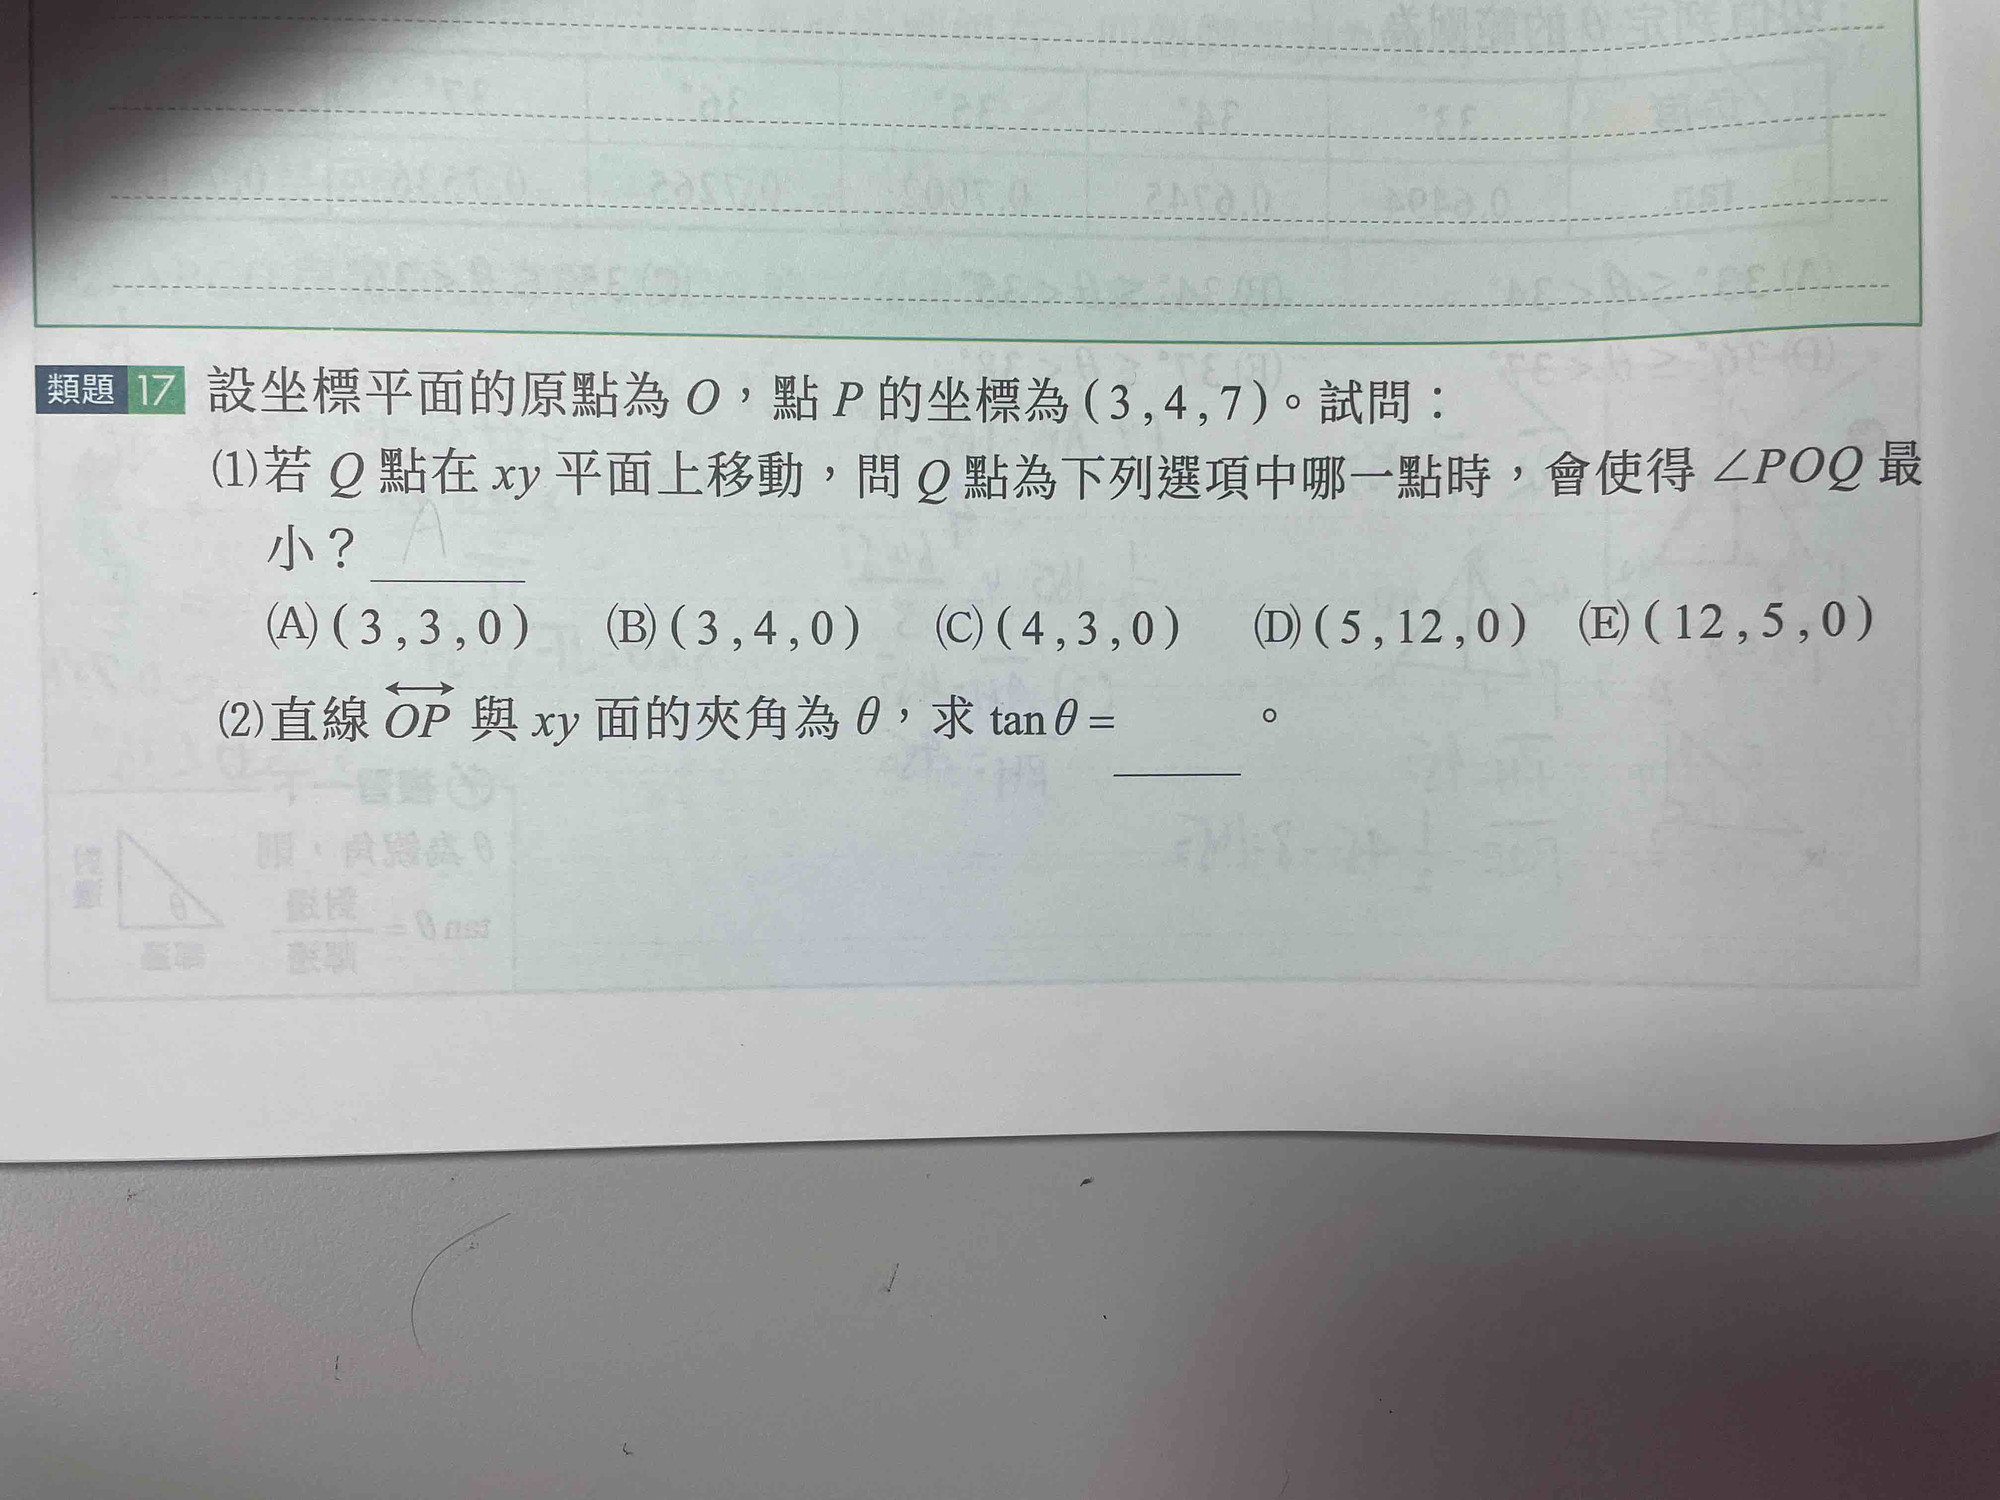 類題 17 設坐標平面的原點為 O，點 P 的坐標為 ( 3 , 4 , 7 )。試問：
⑴若 Q 點在 xy 平面上移動，問 Q 點為下列選項中哪一點時，會使得 ∠POQ 最
小？ A
(A) ( 3 , 3 , 0 ) (B) ( 3 , 4 , 0 ) (C) ( 4 , 3 , 0 ) (D) ( 5 , 12 , 0 ) (E) ( 12 , 5 , 0 )
⑵直線 OP 與 xy 面的夾角為 θ，求 tan θ = ＿＿＿。